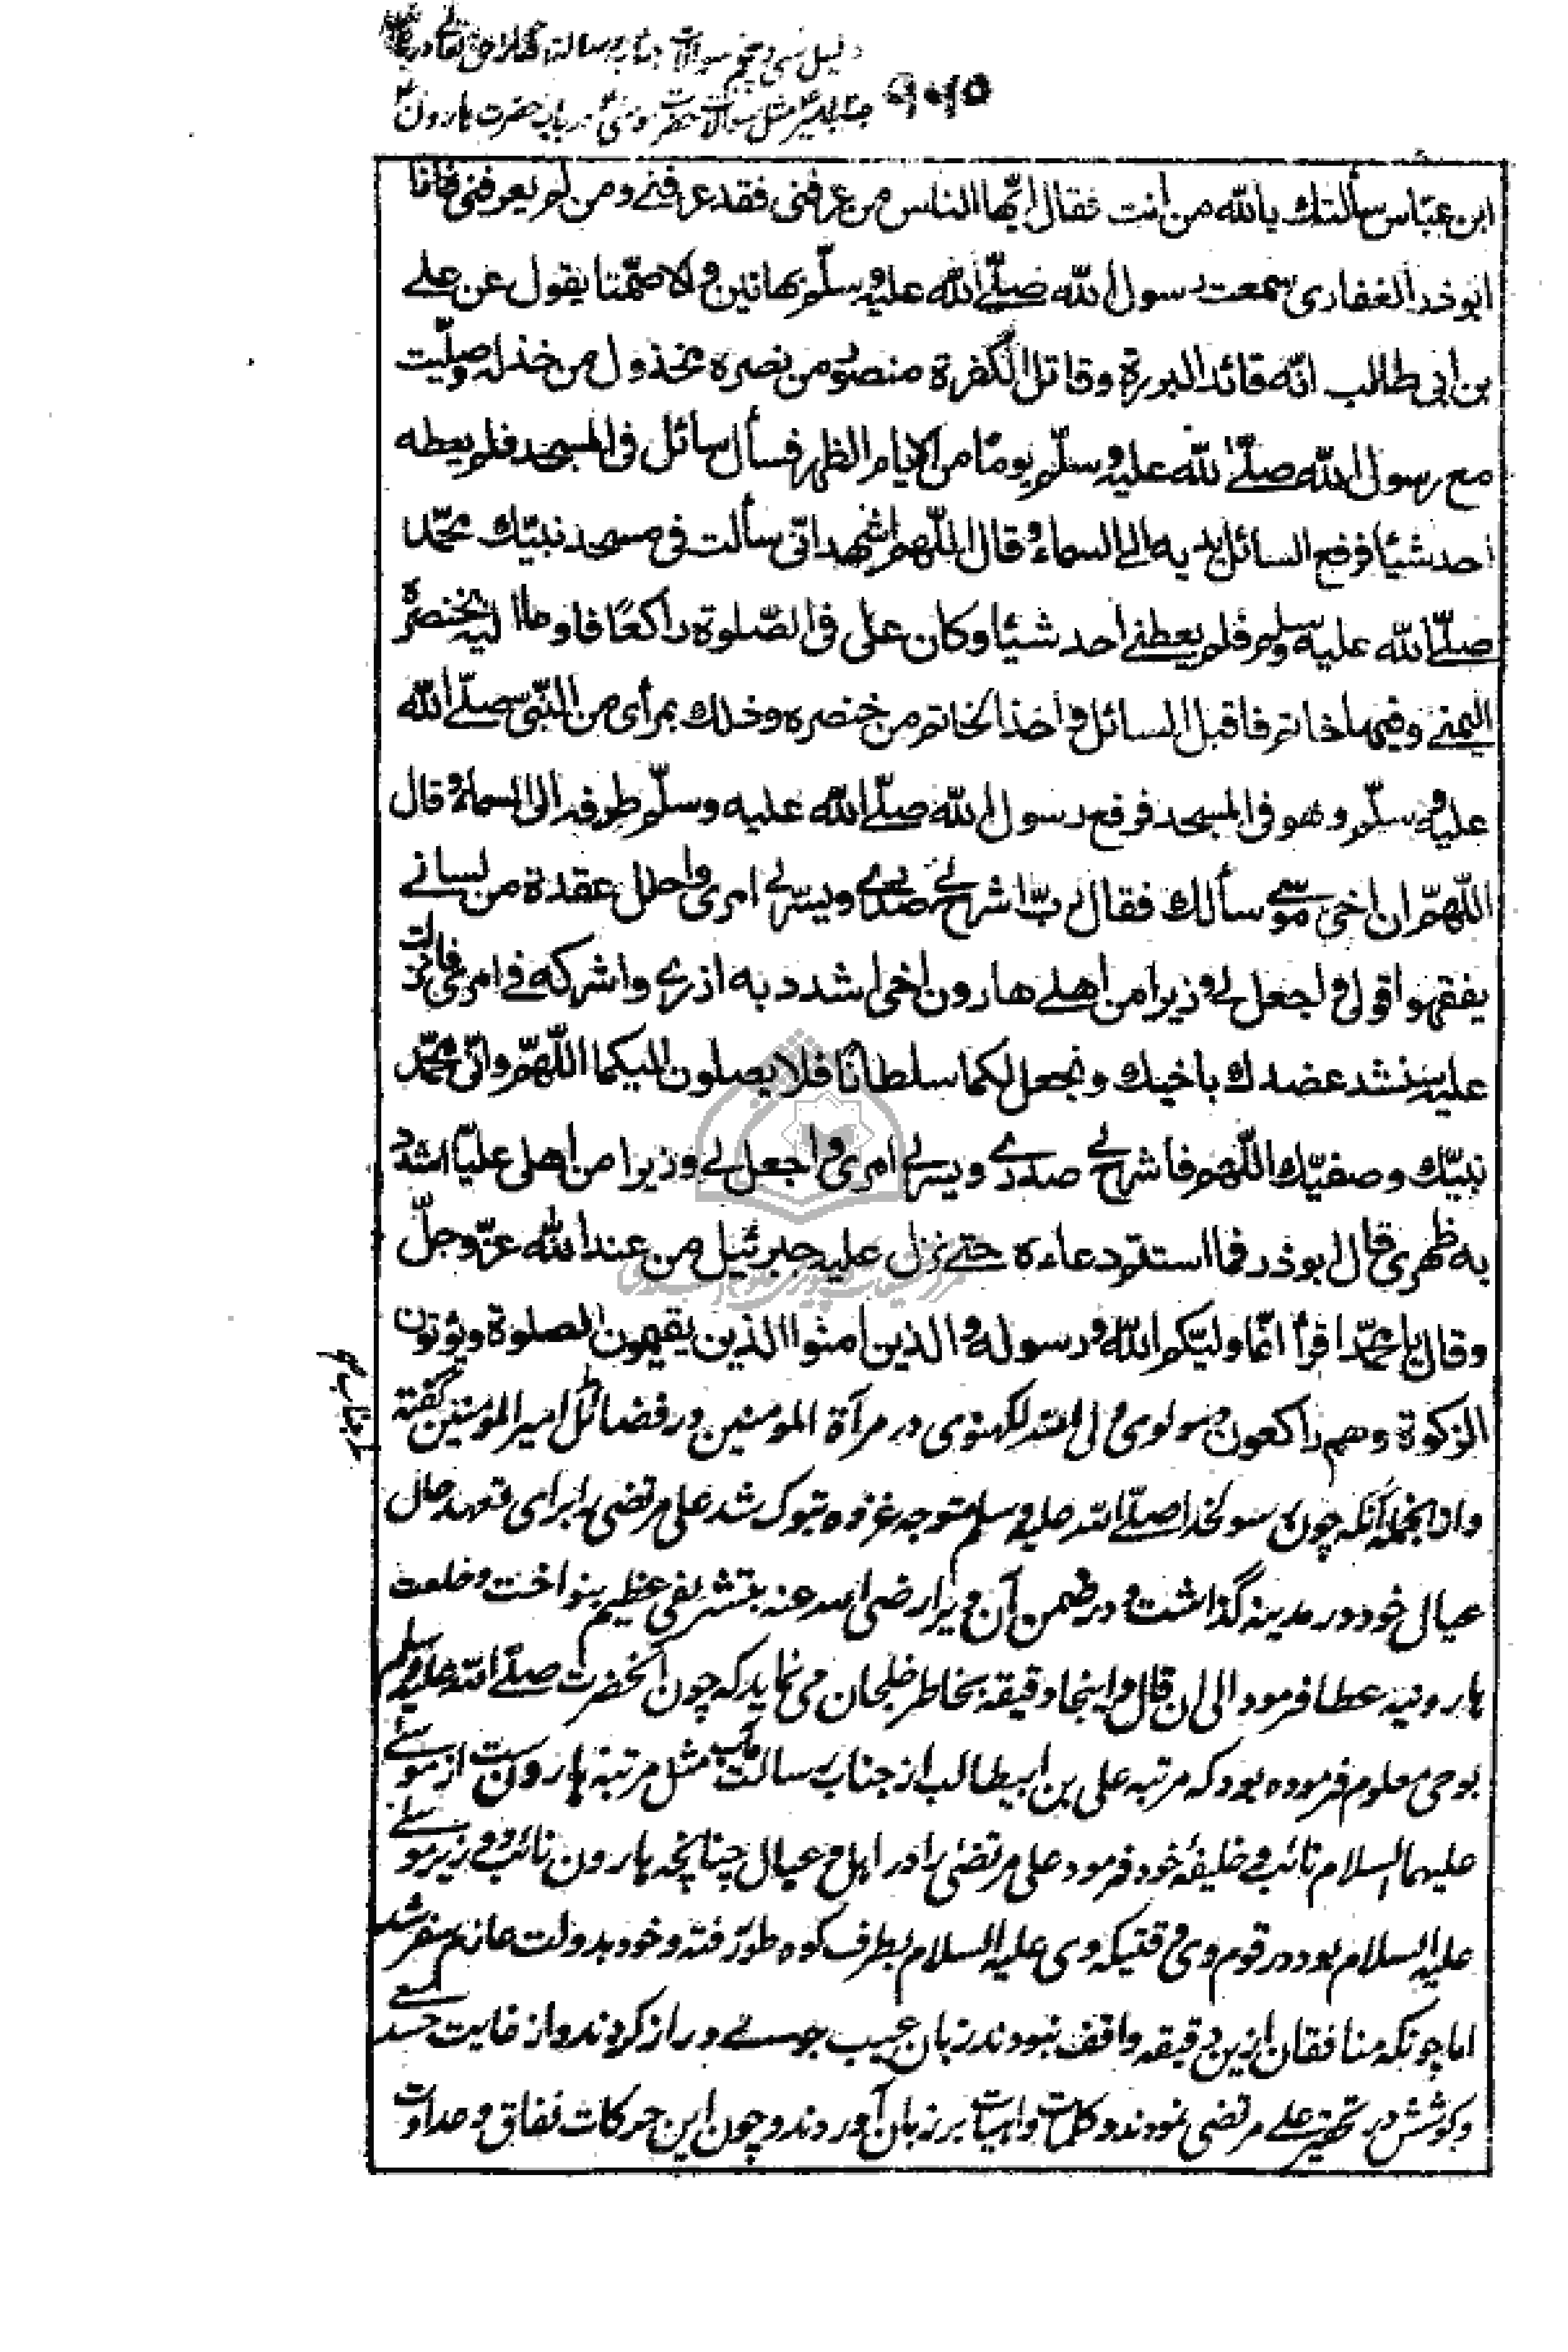 دلیل سی و پنجم سوالات جناب رسالتمآب از حق تعالی در
جناب امیر مثل سوالات حضرت موسی در باب حضرت هارون
۹۰۱۵
ابن عبّاس سألتك بالله من انت فقال ايّها الناس من عرفنی فقد عرفنے ومن لم يعرفنی فانا
ابوذر الغفاری سمعت رسول الله صلّے الله عليه وسلّم بهاتين والا صمّتا يقول عن علے
بن ابی طالب انّه قائد البررة وقاتل الكفرة منصور من نصره مخذول من خذله وصلّيت
مع رسول الله صلّے الله عليه وسلّم يومًا من الايام الظهر فسأل سائل فی المسجد فلم يعطه
احد شيئًا فرفع السائل يديه الی السماء وقال اللّهم اشهد انّی سألت فی مسجد نبيّك محمّد
صلّے الله عليه وسلم فلم يعطنے احد شيئًا وكان علی فی الصّلوة راكعًا فاومأ اليه بخنصره
اليمنے وفيها خاتم فاقبل السائل واخذ الخاتم من خنصره وذلك بمرأی من النّبی صلّے الله
عليه وسلّم وهو فی المسجد فرفع رسول الله صلّے الله عليه وسلّم طرفه الی السماء وقال
اللّهمّ ان اخی موسے سألك فقال ربّ اشرح لے صدرے ويسّر لے امری واحلل عقدة من لسانے
يفقهوا قولی واجعل لے وزيرا من اهلے هارون اخی اشدد به ازرے واشركه فے امری فانزلت
عليه سنشد عضدك باخيك ونجعل لكما سلطانًا فلا يصلون اليكما اللّهمّ وانّی محمّد
نبيّك وصفيّك اللّهم فاشرح لے صدرے ويسّر لے امری واجعل لے وزيرا من اهلی عليّا اشدد
به ظهری قال ابوذر فما استتم دعاءه حتے نزل عليه جبرئيل من عند الله عزّ وجلّ
وقال يا محمّد اقرأ انّما وليّكم الله ورسوله والذين امنوا الذين يقيمون الصلوة ويؤتون
الزكوة وهم راكعون و مولوی ولی الله لکهنوی در مرآة المومنین در فضائل امیر المومنین گفته
وازانجمله آنکه چون رسولخدا صلّے الله علیه وسلم متوجه غزوه تبوک شد علی مرتضی را برای تعهد حال
عیال خود در مدینه گذاشت و در ضمن آن ویرا رضی الله عنه بتشریفی عظیم بنواخت و خلعت
هارونیه عطا فرمود الی ان قال و اینجا دقیقه بخاطر خلجان می نماید که چون آنحضرت صلّے الله علیه وسلم
بوحی معلوم فرموده بود که مرتبه علی بن ابیطالب از جناب رسالت مآب مثل مرتبهٔ هارونست از موسے
علیهما السلام نائب و خلیفهٔ خود فرمود علی مرتضی را در اهل و عیال چنانچه هارون نائب و وزیر موسے
علیه السلام بود در قوم وی وقتیکه وی علیه السلام بطرف کوه طور رفته و خود بدولت عازم سفر شد
اما چونکه منافقان ازین دقیقه واقف نبودند زبان عیب جوئے دراز کردند و از غایت حسد سعے
و کوشش در تحقیر علے مرتضی نمودند و کلمات واهیات بر زبان آوردند و چون این حرکات نفاق و عداوت